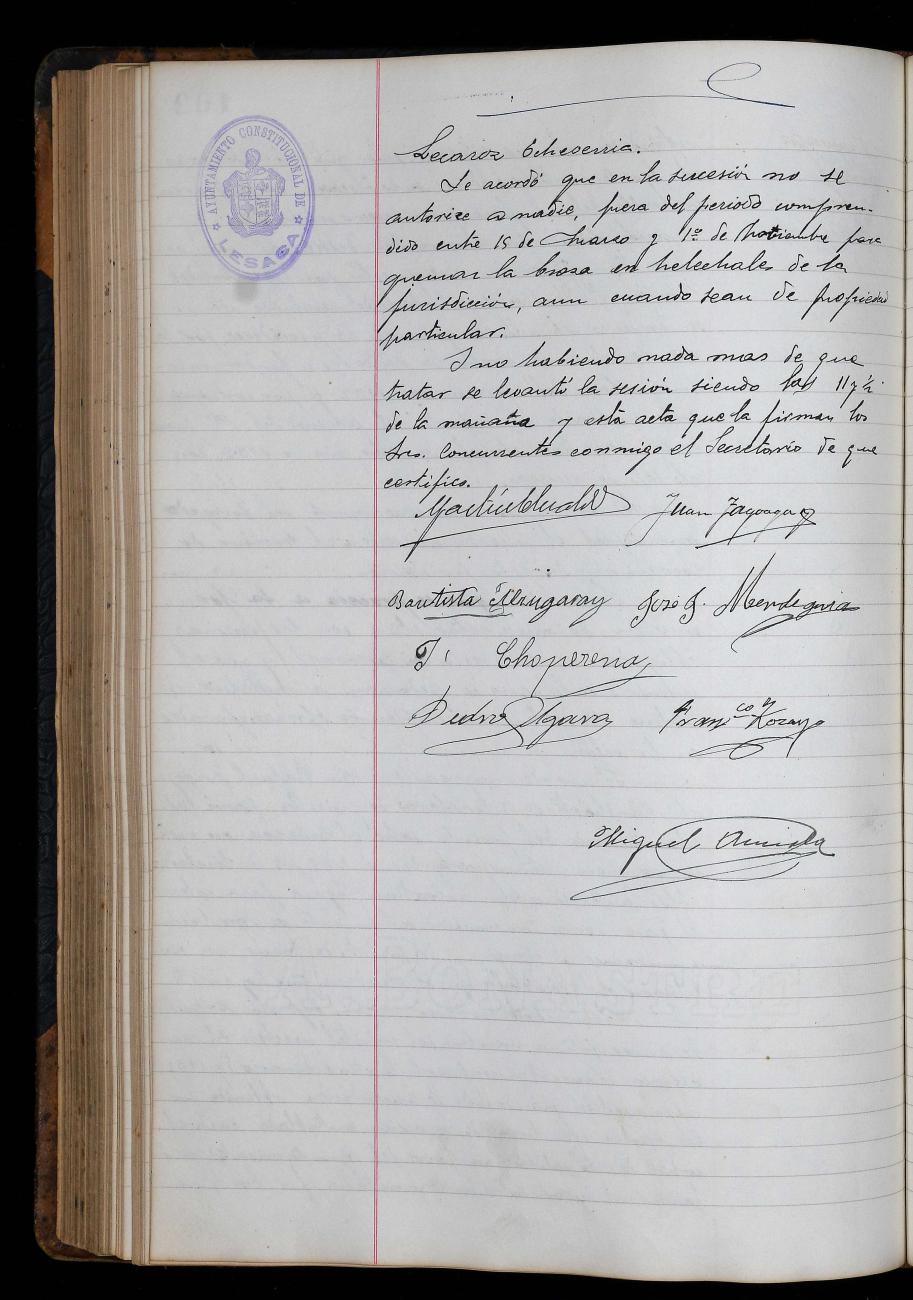 AYUNTAMIENTO CONSTITUCIONAL DE
LESACA
Lecaroz Echeverria.
Se acordó que en la sucesión no se
autorize a nadie, fuera del periodo compren-
dido entre 15 de Marzo y 1º de Noviembre para
quemar la broza en helechales de la
jurisdicción, aun cuando sean de propiedad
particular.
Y no habiendo nada mas de que
tratar se levantó la sesión siendo las 11 y ½
de la mañana y esta acta que la firman los
Sres. Concurrentes conmigo el Secretario de que
certifico.
Juan
Bautista José J. Mendeguia
Choperena
Pedro Ugara
Miguel